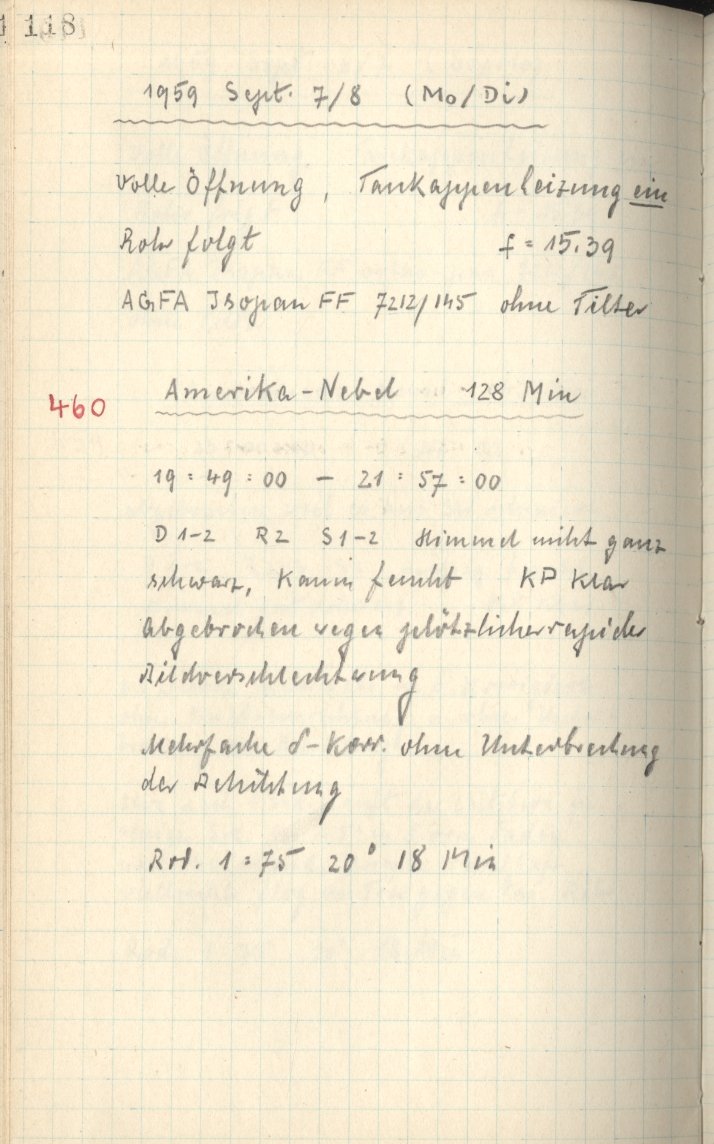 118
1959 Sept. 7/8 (Mo/Di)
Volle Öffnung, Taukappenheizung ein
Rohr folgt f = 15.39
AGFA Isopan FF 7212/145 ohne Filter
460 Amerika-Nebel 128 Min
19 : 49 : 00 — 21 : 57 : 00
D 1-2 R2 S 1-2 Himmel nicht ganz
schwarz, kaum feucht KP klar
Abgebrochen wegen plötzlicher rapider
Bildverschlechterung
Mehrfache δ-Korr. ohne Unterbrechung
der Belichtung
Rod. 1:75 20° 18 Min